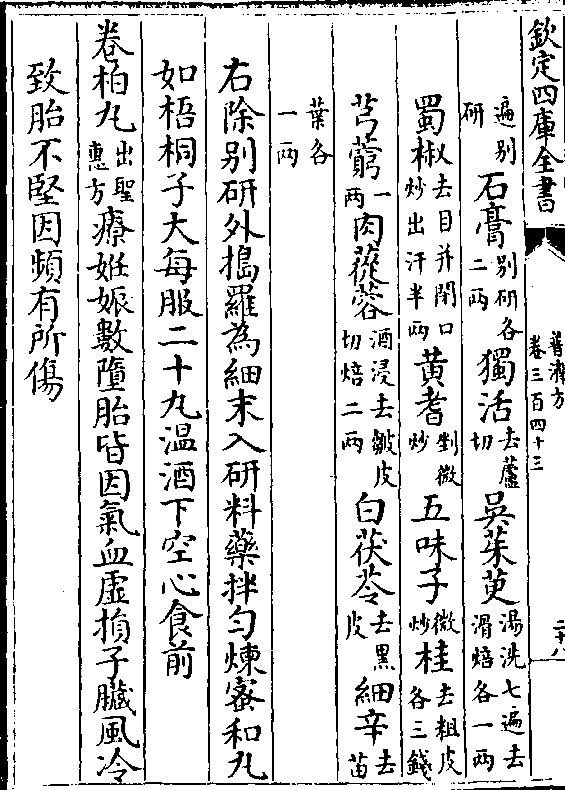 欽定四庫全書
普濟方
卷三百四十三
二十八
遍別研 石膏別研各二兩 獨活去蘆切 吳茱萸湯洗七遍去滑焙各一兩
蜀椒去目并閉口炒出汗半兩 黃耆剉微炒 五味子微炒 桂去粗皮各三錢
芎藭一兩 肉蓯蓉酒浸去皺皮切焙二兩 白茯苓去黑皮 細辛去苗
葉各一兩
右除別研外搗羅為細末入研料藥拌勻煉蜜和丸
如梧桐子大每服二十丸温酒下空心食前
卷柏丸出聖惠方 療姙娠數墮胎皆因氣血虛損子臟風冷
致胎不堅因頻有所傷